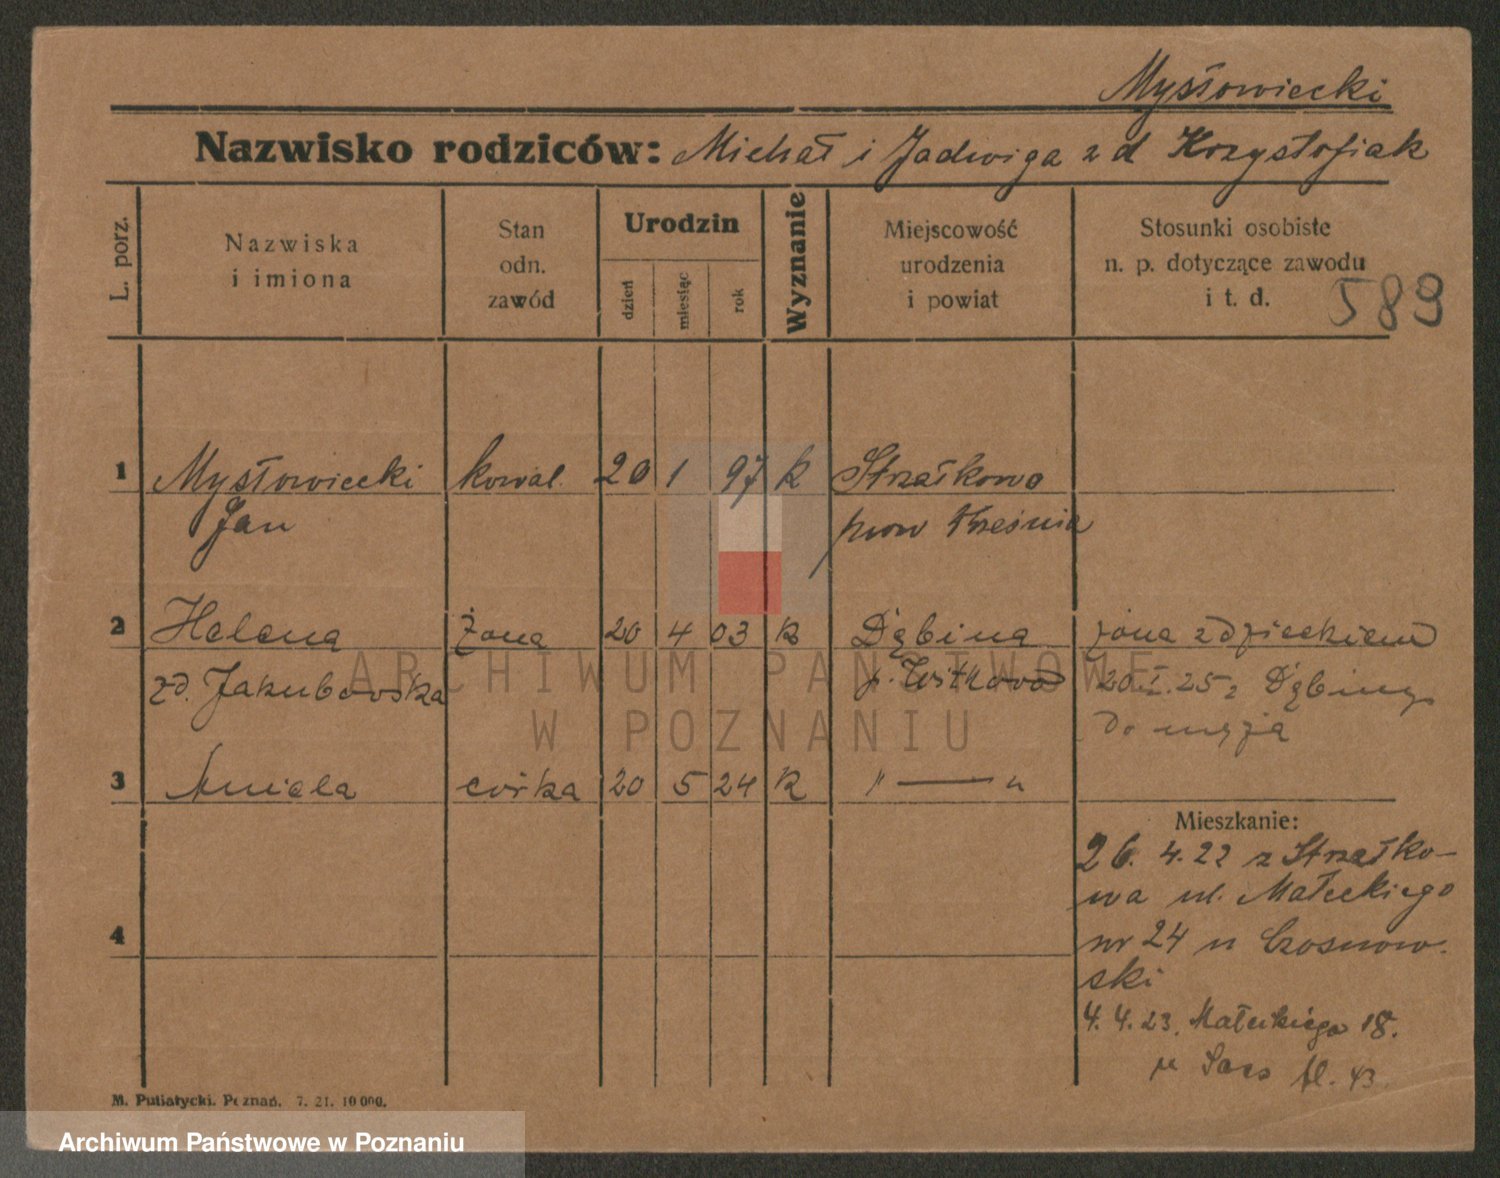 Mysłowiecki
Nazwisko rodziców: Michał i Jadwiga z d Krzysztofiak
L. porz.
Nazwiska
i imiona
Stan
odn.
zawód
Urodzin
dzień
miesiąc
rok
Wyznanie
Miejscowość
urodzenia
i powiat
Stosunki osobiste
n. p. dotyczące zawodu
i t. d.
589
1 Mysłowiecki kowal. 20 1 97 k Strzałkowo
Jan pow Września
2 Helena żona 20 4 03 k Dąbina żona z dzieckiem
zd. Jakubowska p. Witkowo 20.I.25 z Dąbiny
do męża
3 Aniela córka 20 5 24 k " — "
Mieszkanie:
26. 4. 22 z Strzałko-
wa ul. Małeckiego
nr 24 u Czosnow-
ski
4
4. 4. 23. Małeckiego 18.
u
43
M. Putiatycki. Poznań. 7. 21. 10 000.
ARCHIWUM PAŃSTWOWE
W POZNANIU
Archiwum Państwowe w Poznaniu